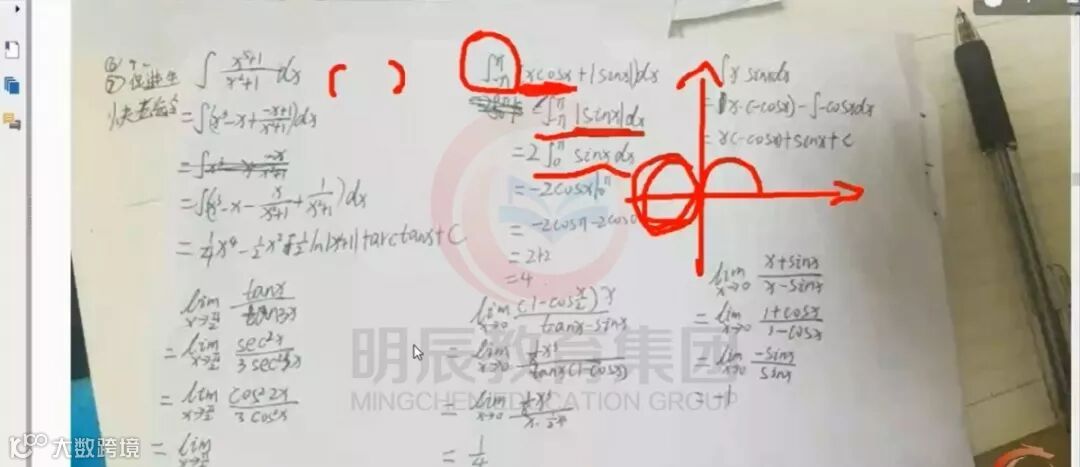 ∫ (x⁵+1)/(x²+1) dx
= ∫(x³-x+(-x+1)/(x²+1))dx
= ∫(x³-x-x/(x²+1)+1/(x²+1))dx
= 1/4 x⁴ - 1/2 x² - 1/2 ln|x²+1| + arctanx + C
lim x→π/2 tanx/tan3x
= lim x→π/2 sec²x/3sec²3x
= lim x→π/2
= lim x→π/2
∫-π^π (xcosx+|sinx|)dx
= ∫-π^π |sinx|dx
= 2∫0^π sinxdx
= -2cosx|0^π
= -2cosπ-2cos0
= 2+2
= 4
lim x→0 (1-cos x/2)x/(tanx-sinx)
= lim x→0 /tanx(1-cosx)
= lim x→0
= 1/4
∫x sinxdx
= x·(-cosx)-∫-cosxdx
= x(-cosx)+sinx+C
lim x→0 (x+sinx)/(x-sinx)
= lim x→0 (1+cosx)/(1-cosx)
= lim x→0 -sinx/sinx
= -1
明辰教育集团
MINGCHEN EDUCATION GROUP
大数跨境